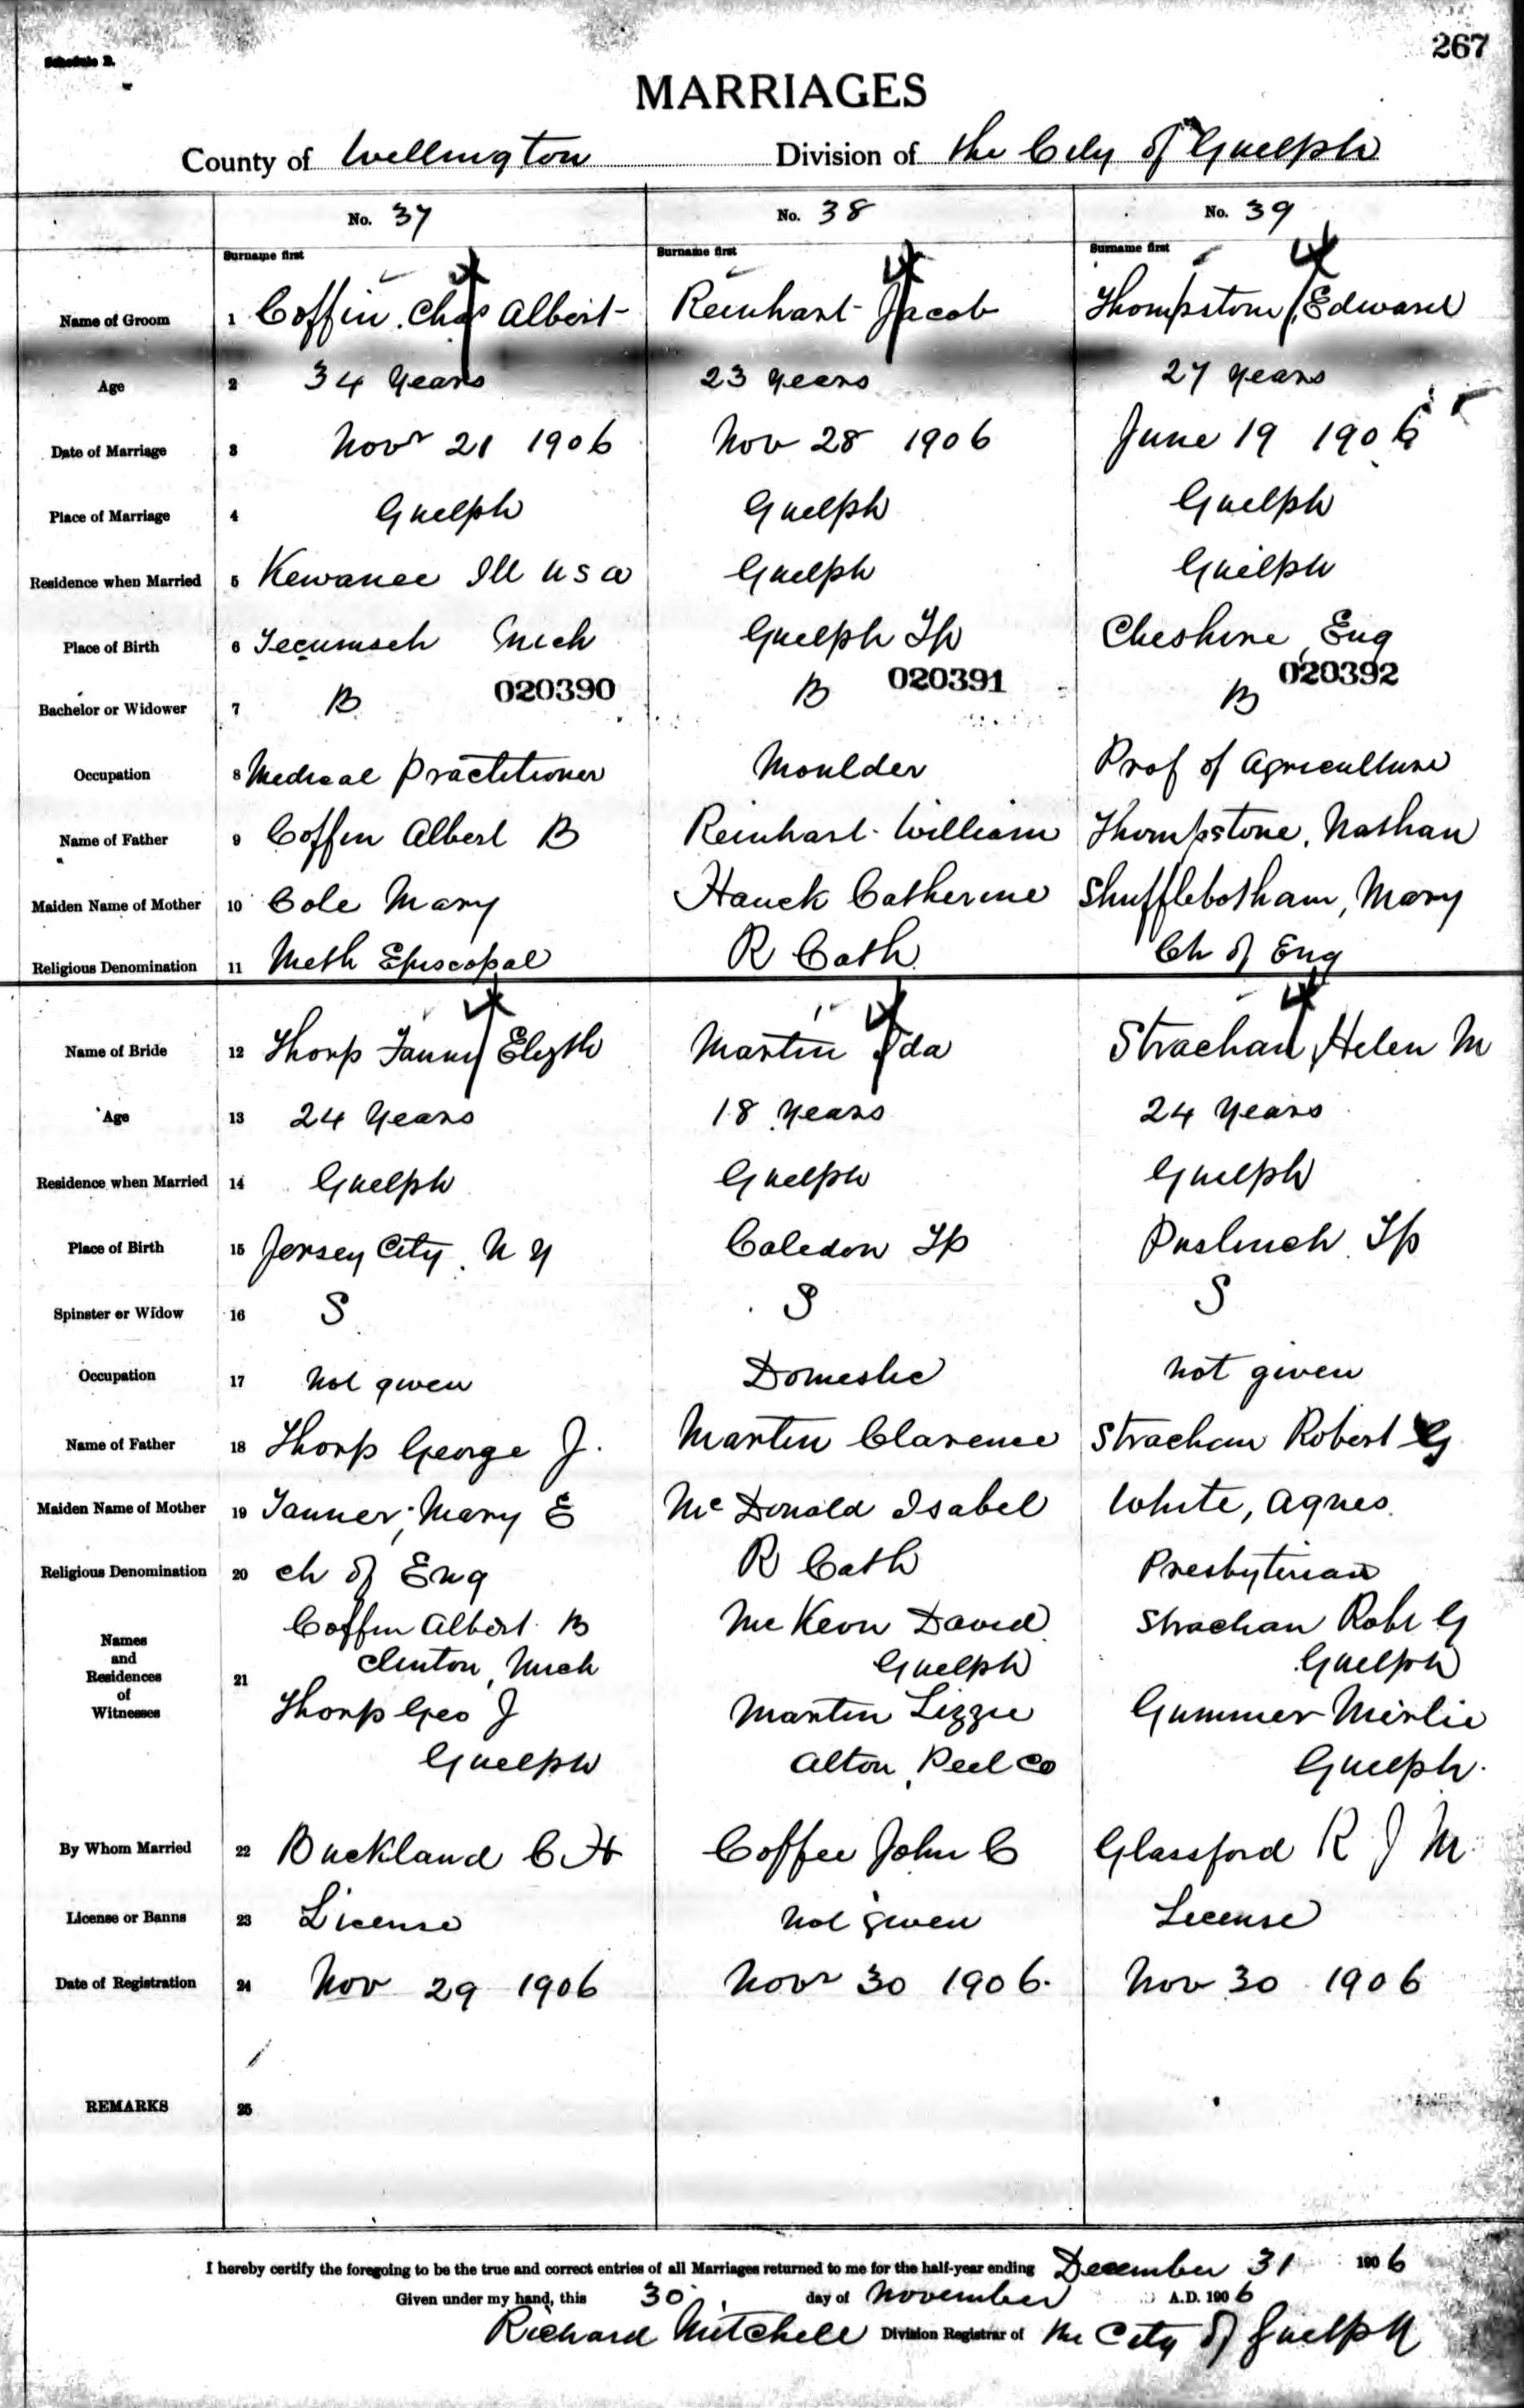 267
Schedule B.
MARRIAGES
County of Wellington Division of the City of Guelph
No. 37 No. 38 No. 39
Surname first Surname first Surname first
Name of Groom 1 Coffin Chas Albert Reinhart Jacob Thompstone, Edward
Age 2 34 Years 23 years 27 years
Date of Marriage 3 Novr 21 1906 Nov 28 1906 June 19 1906
Place of Marriage 4 Guelph Guelph Guelph
Residence when Married 5 Kewanee Ill U S A Guelph Guelph
Place of Birth 6 Tecumseh Mich Guelph Tp Cheshire, Eng
Bachelor or Widower 7 B 020390 B 020391 B 020392
Occupation 8 Medical Practitioner Moulder Prof of Agriculture
Name of Father 9 Coffin Albert B Reinhart William Thompstone, Nathan
Maiden Name of Mother 10 Cole Mary Hauck Catherine Shufflebotham, Mary
Religious Denomination 11 Meth Episcopal R Cath Ch of Eng
Name of Bride 12 Thorp Fanny Elizth Martin Ida Strachan, Helen M
Age 13 24 Years 18 Years 24 Years
Residence when Married 14 Guelph Guelph Guelph
Place of Birth 15 Jersey City, N Y Caledon Tp Puslinch Tp
Spinster or Widow 16 S S S
Occupation 17 Not given Domestic not given
Name of Father 18 Thorp George J. Martin Clarence Strachan Robert G
Maiden Name of Mother 19 Tanner, Mary E McDonald Isabel White, Agnes
Religious Denomination 20 Ch of Eng R Cath Presbyterian
Names and Residences of Witnesses 21 Coffin Albert B McKeon David Strachan Robt G
Clinton, Mich Guelph Guelph
Thorp Geo J Martin Lizzie Gummer Mirlie
Guelph Alton, Peel Co Guelph.
By Whom Married 22 Buckland C H Coffee John C Glassford R J M
License or Banns 23 License Not given License
Date of Registration 24 Nov 29 1906 Novr 30 1906. Nov 30 1906
REMARKS 25
I hereby certify the foregoing to be the true and correct entries of all Marriages returned to me for the half-year ending December 31 1906
Given under my hand, this 30 day of November A.D. 1906
Richard Mitchell Division Registrar of the City of Guelph